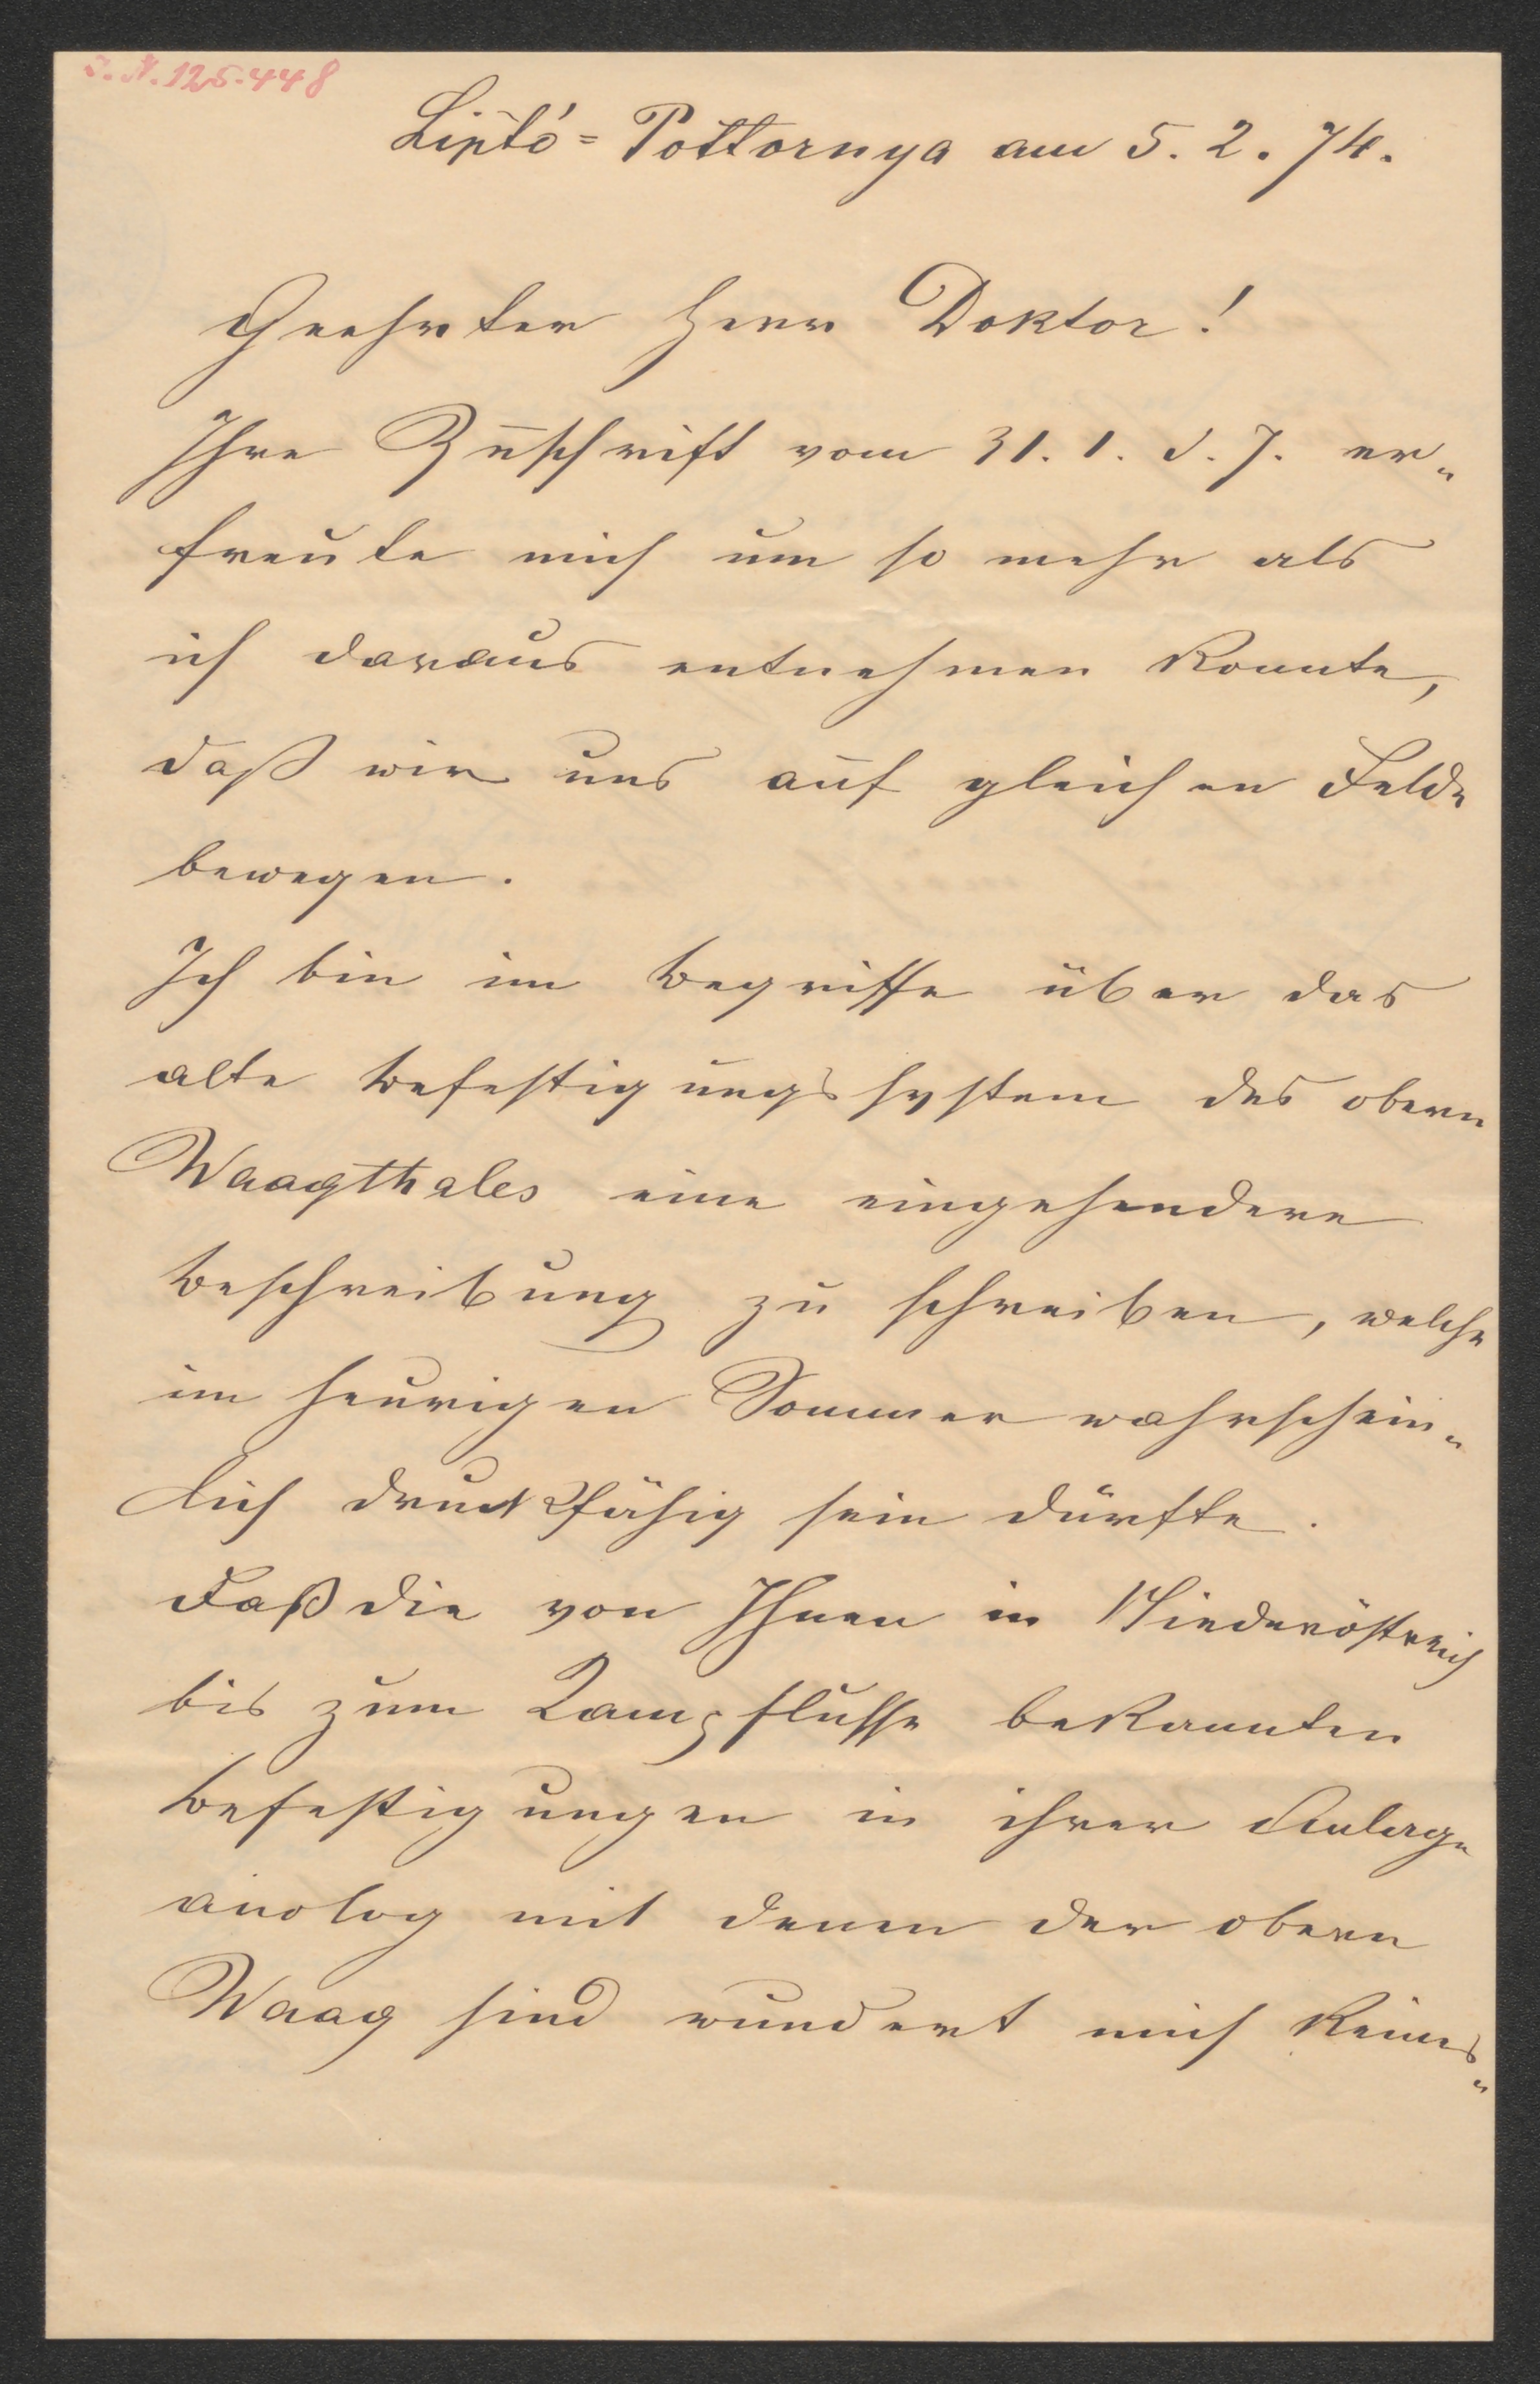 I. N. 125.448
Liptó=Pottornya am 5. 2. 74.
Geehrter Herr Doktor!
Ihre Zuschrift vom 31. 1. d. J. er„
freute mich um so mehr als
ich daraus entnehmen konnte,
daß wir uns auf gleichen Felde
bewegen.
Ich bin im Begriffe über das
alte Befestigungssystem des obern
Waagthales eine eingehendere
Beschreibung zu schreiben, welche
im heurigen Sommer wahrschein„
lich druckfähig sein dürfte.
Daß die von Ihnen in Niederöstreich
bis zum Kampflusse bekannten
Befestigungen in ihrer Anlage
anolog mit denen der obern
Waag sind wundert mich keines„